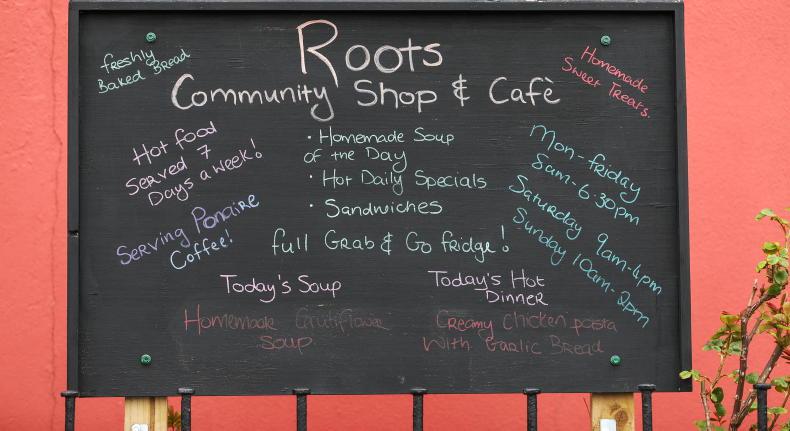 Roots
Community Shop & Cafè
freshly
Baked Bread
Homemade
Sweet Treats.
Hot food
Served 7
Days a week!
Serving Ponaire
Coffee!
· Homemade Soup
of the Day
· Hot Daily Specials
· Sandwiches
full Grab & Go fridge!
Mon-friday
8am-6.30pm
Saturday 9am-4pm
Sunday 10am-2pm
Today's Soup
Homemade
Soup
Today's Hot
Dinner
Creamy Chicken pasta
With Garlic Bread